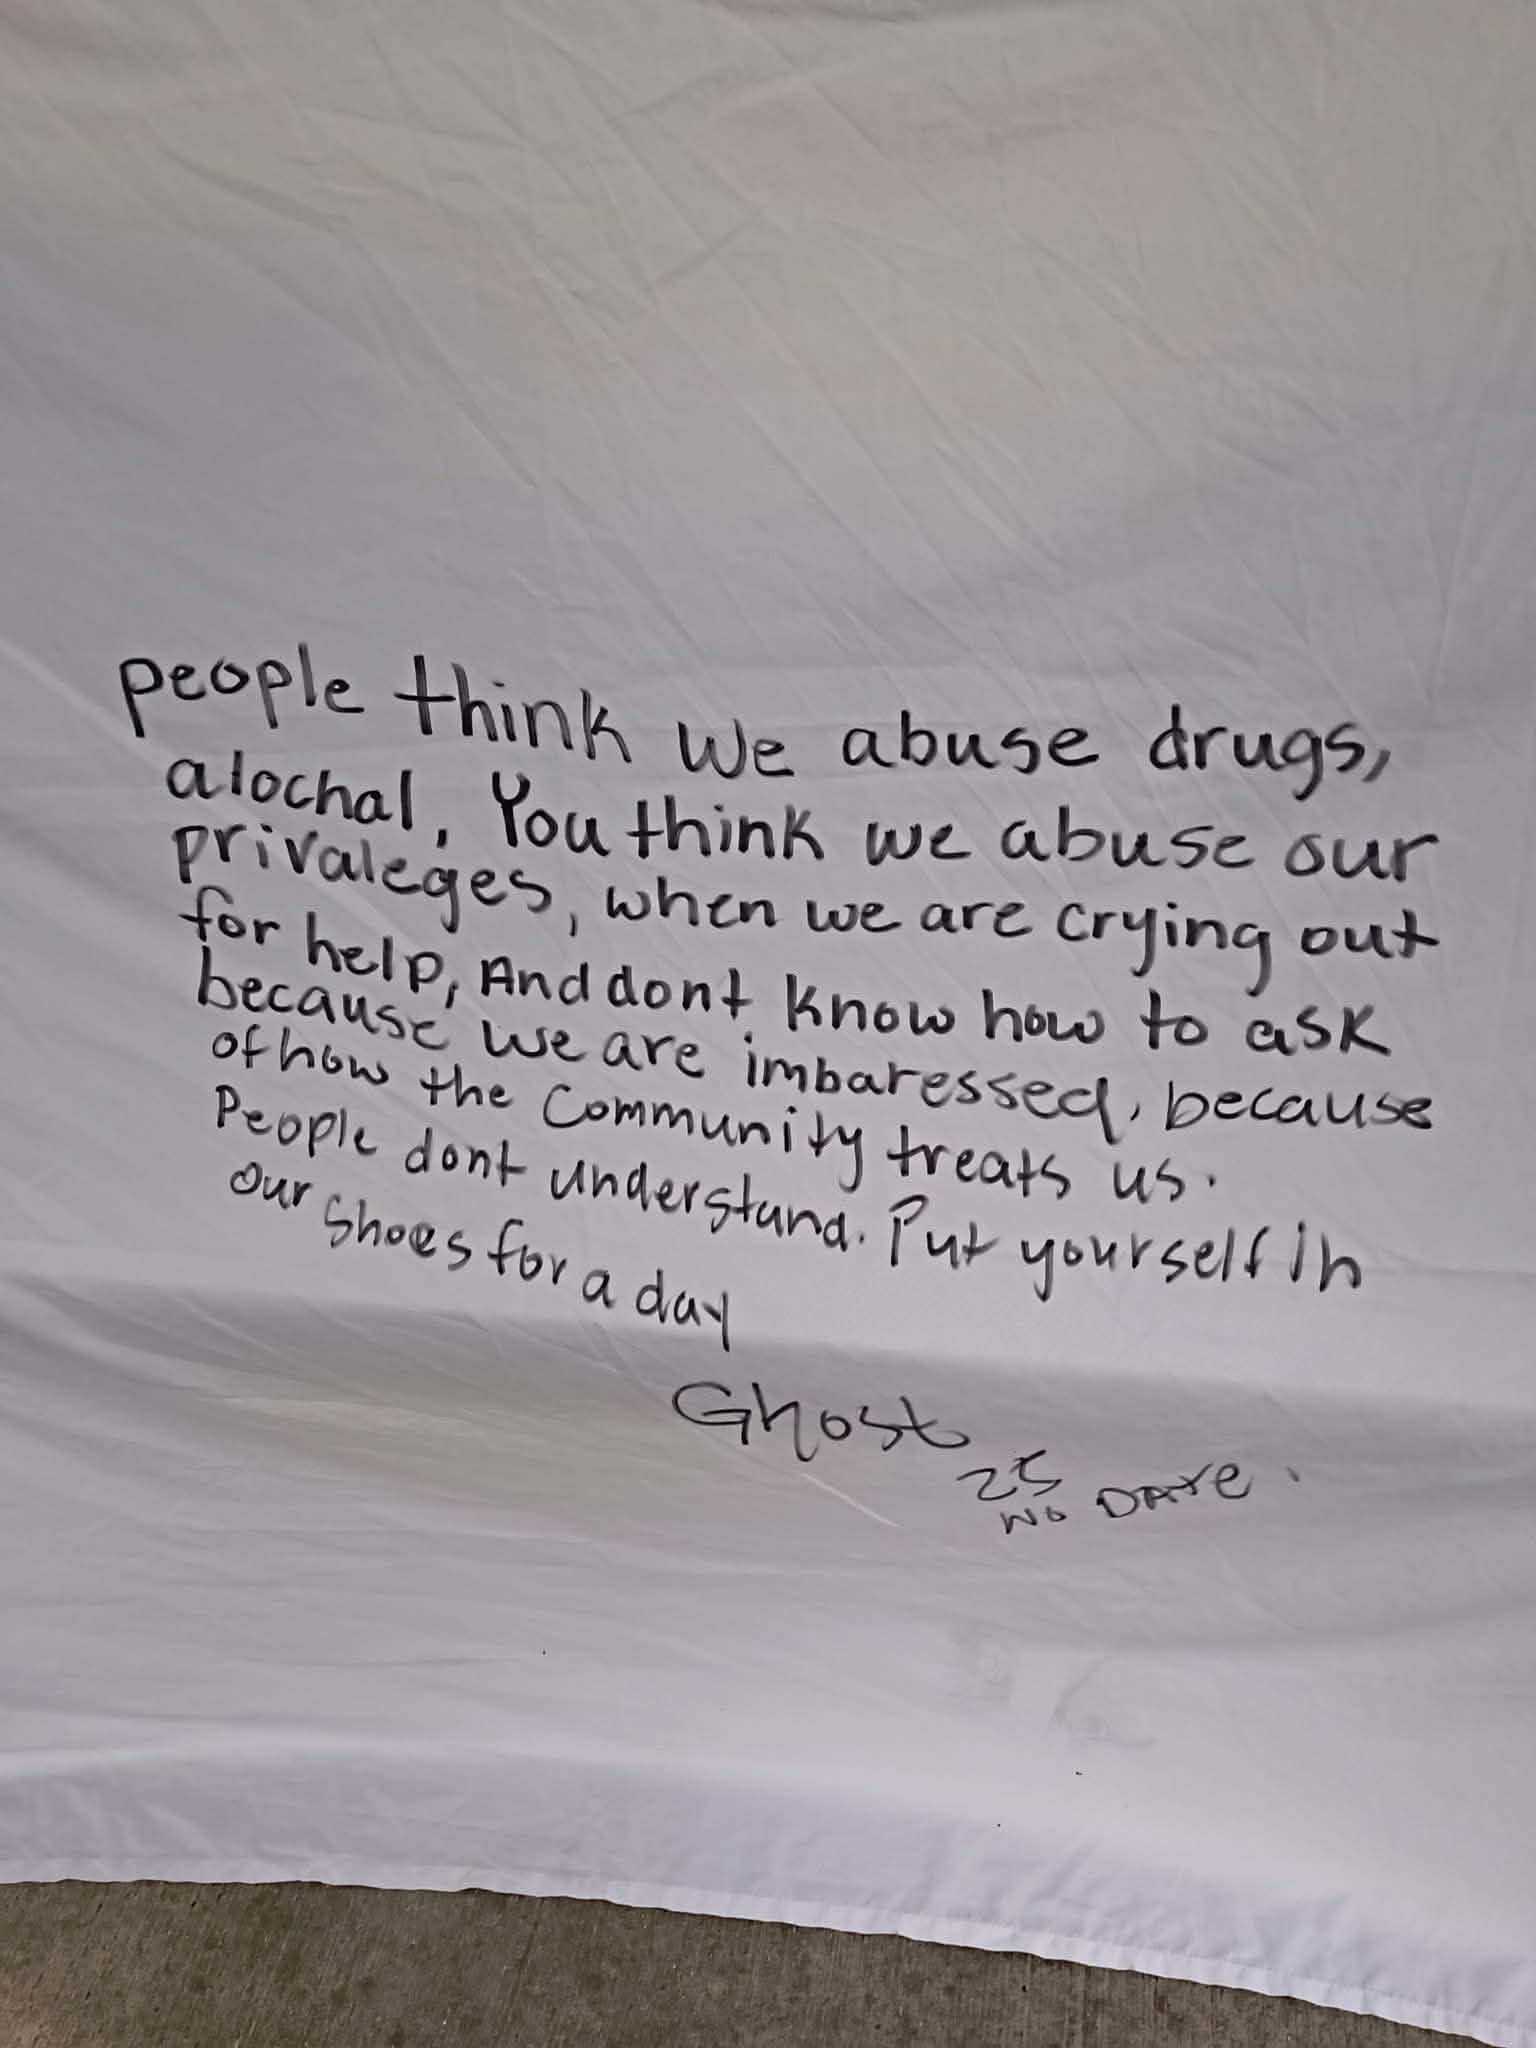 people think we abuse drugs,
alochal, You think we abuse our
privaleges, when we are crying out
for help, And dont know how to ask
because we are imbaressed, because
of how the community treats us.
People dont understand. Put yourself in
our shoes for a day
Ghost
25
No DATE.